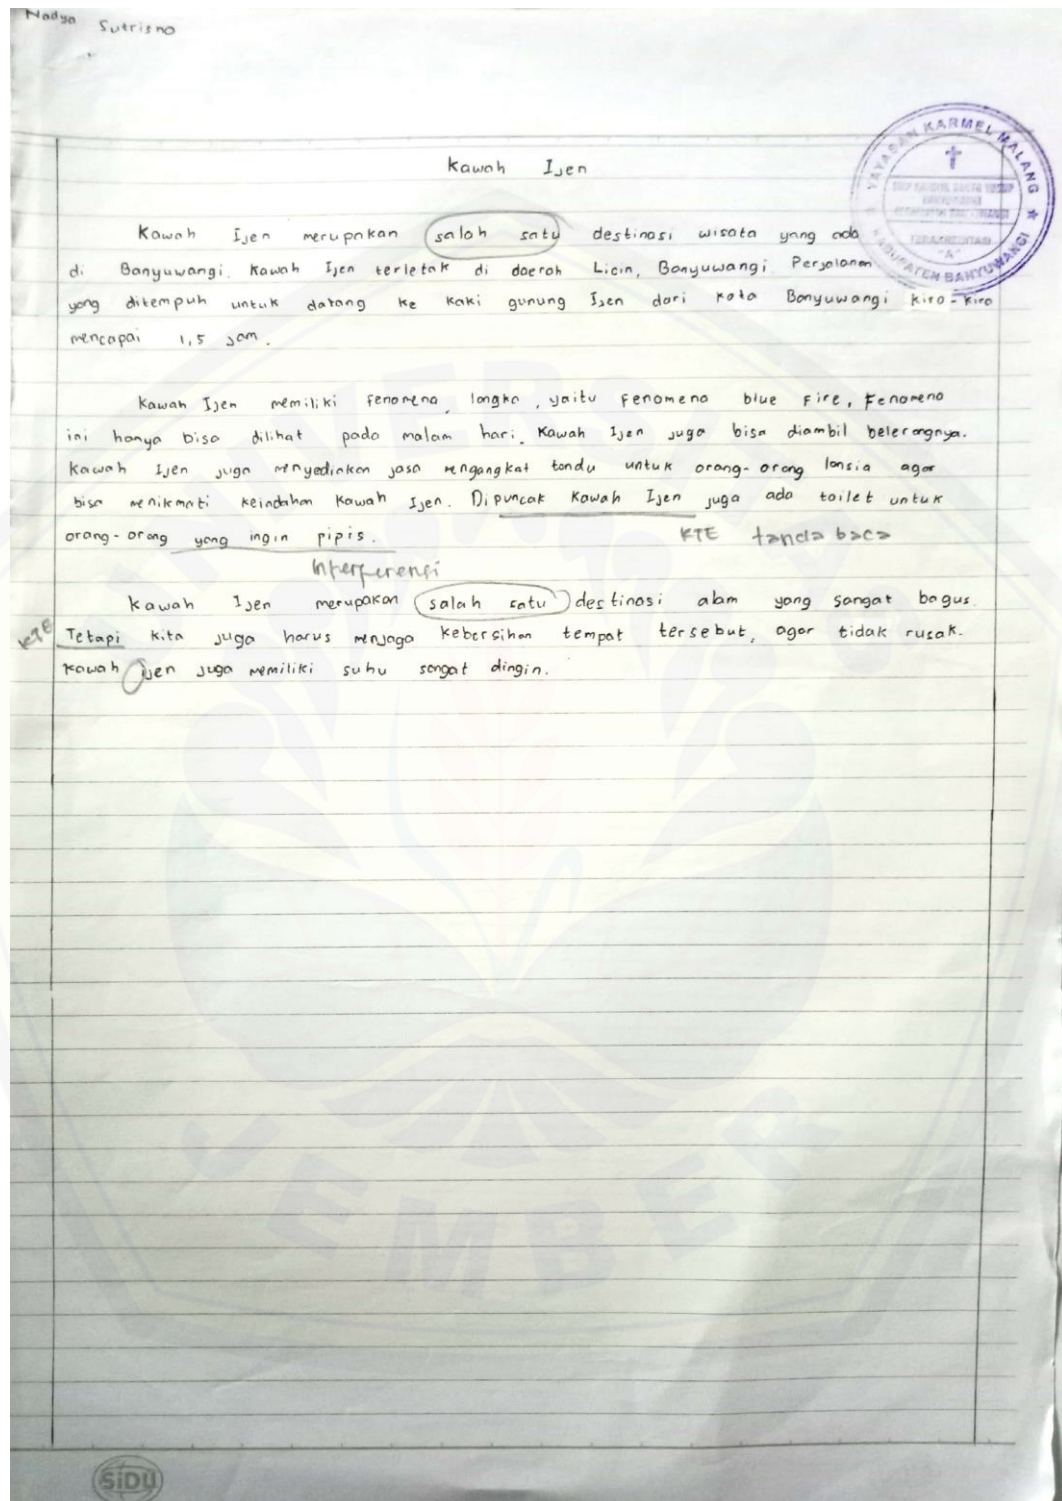 Nadya Sutrisno
YAYASAN KARMEL MALANG
KABUPATEN BANYUWANGI
"A"
Kawah Ijen
Kawah Ijen merupakan salah satu destinasi wisata yang ada
di Banyuwangi. Kawah Ijen terletak di daerah Licin, Banyuwangi. Perjalanan
yang ditempuh untuk datang ke kaki gunung Ijen dari kota Banyuwangi kira-kira
mencapai 1,5 jam.
Kawah Ijen memiliki fenomena langka, yaitu fenomena blue fire, Fenomena
ini hanya bisa dilihat pada malam hari. Kawah Ijen juga bisa diambil belerangnya.
Kawah Ijen juga menyediakan jasa mengangkat tandu untuk orang-orang lansia agar
bisa menikmati keindahan Kawah Ijen. Dipuncak Kawah Ijen juga ada toilet untuk
orang-orang yang ingin pipis. KTE tanda baca
Interferensi
Kawah Ijen merupakan salah satu destinasi alam yang sangat bagus.
KTE Tetapi kita juga harus menjaga kebersihan tempat tersebut, agar tidak rusak.
Kawah ijen juga memiliki suhu sangat dingin.
JEMBER
SiDU